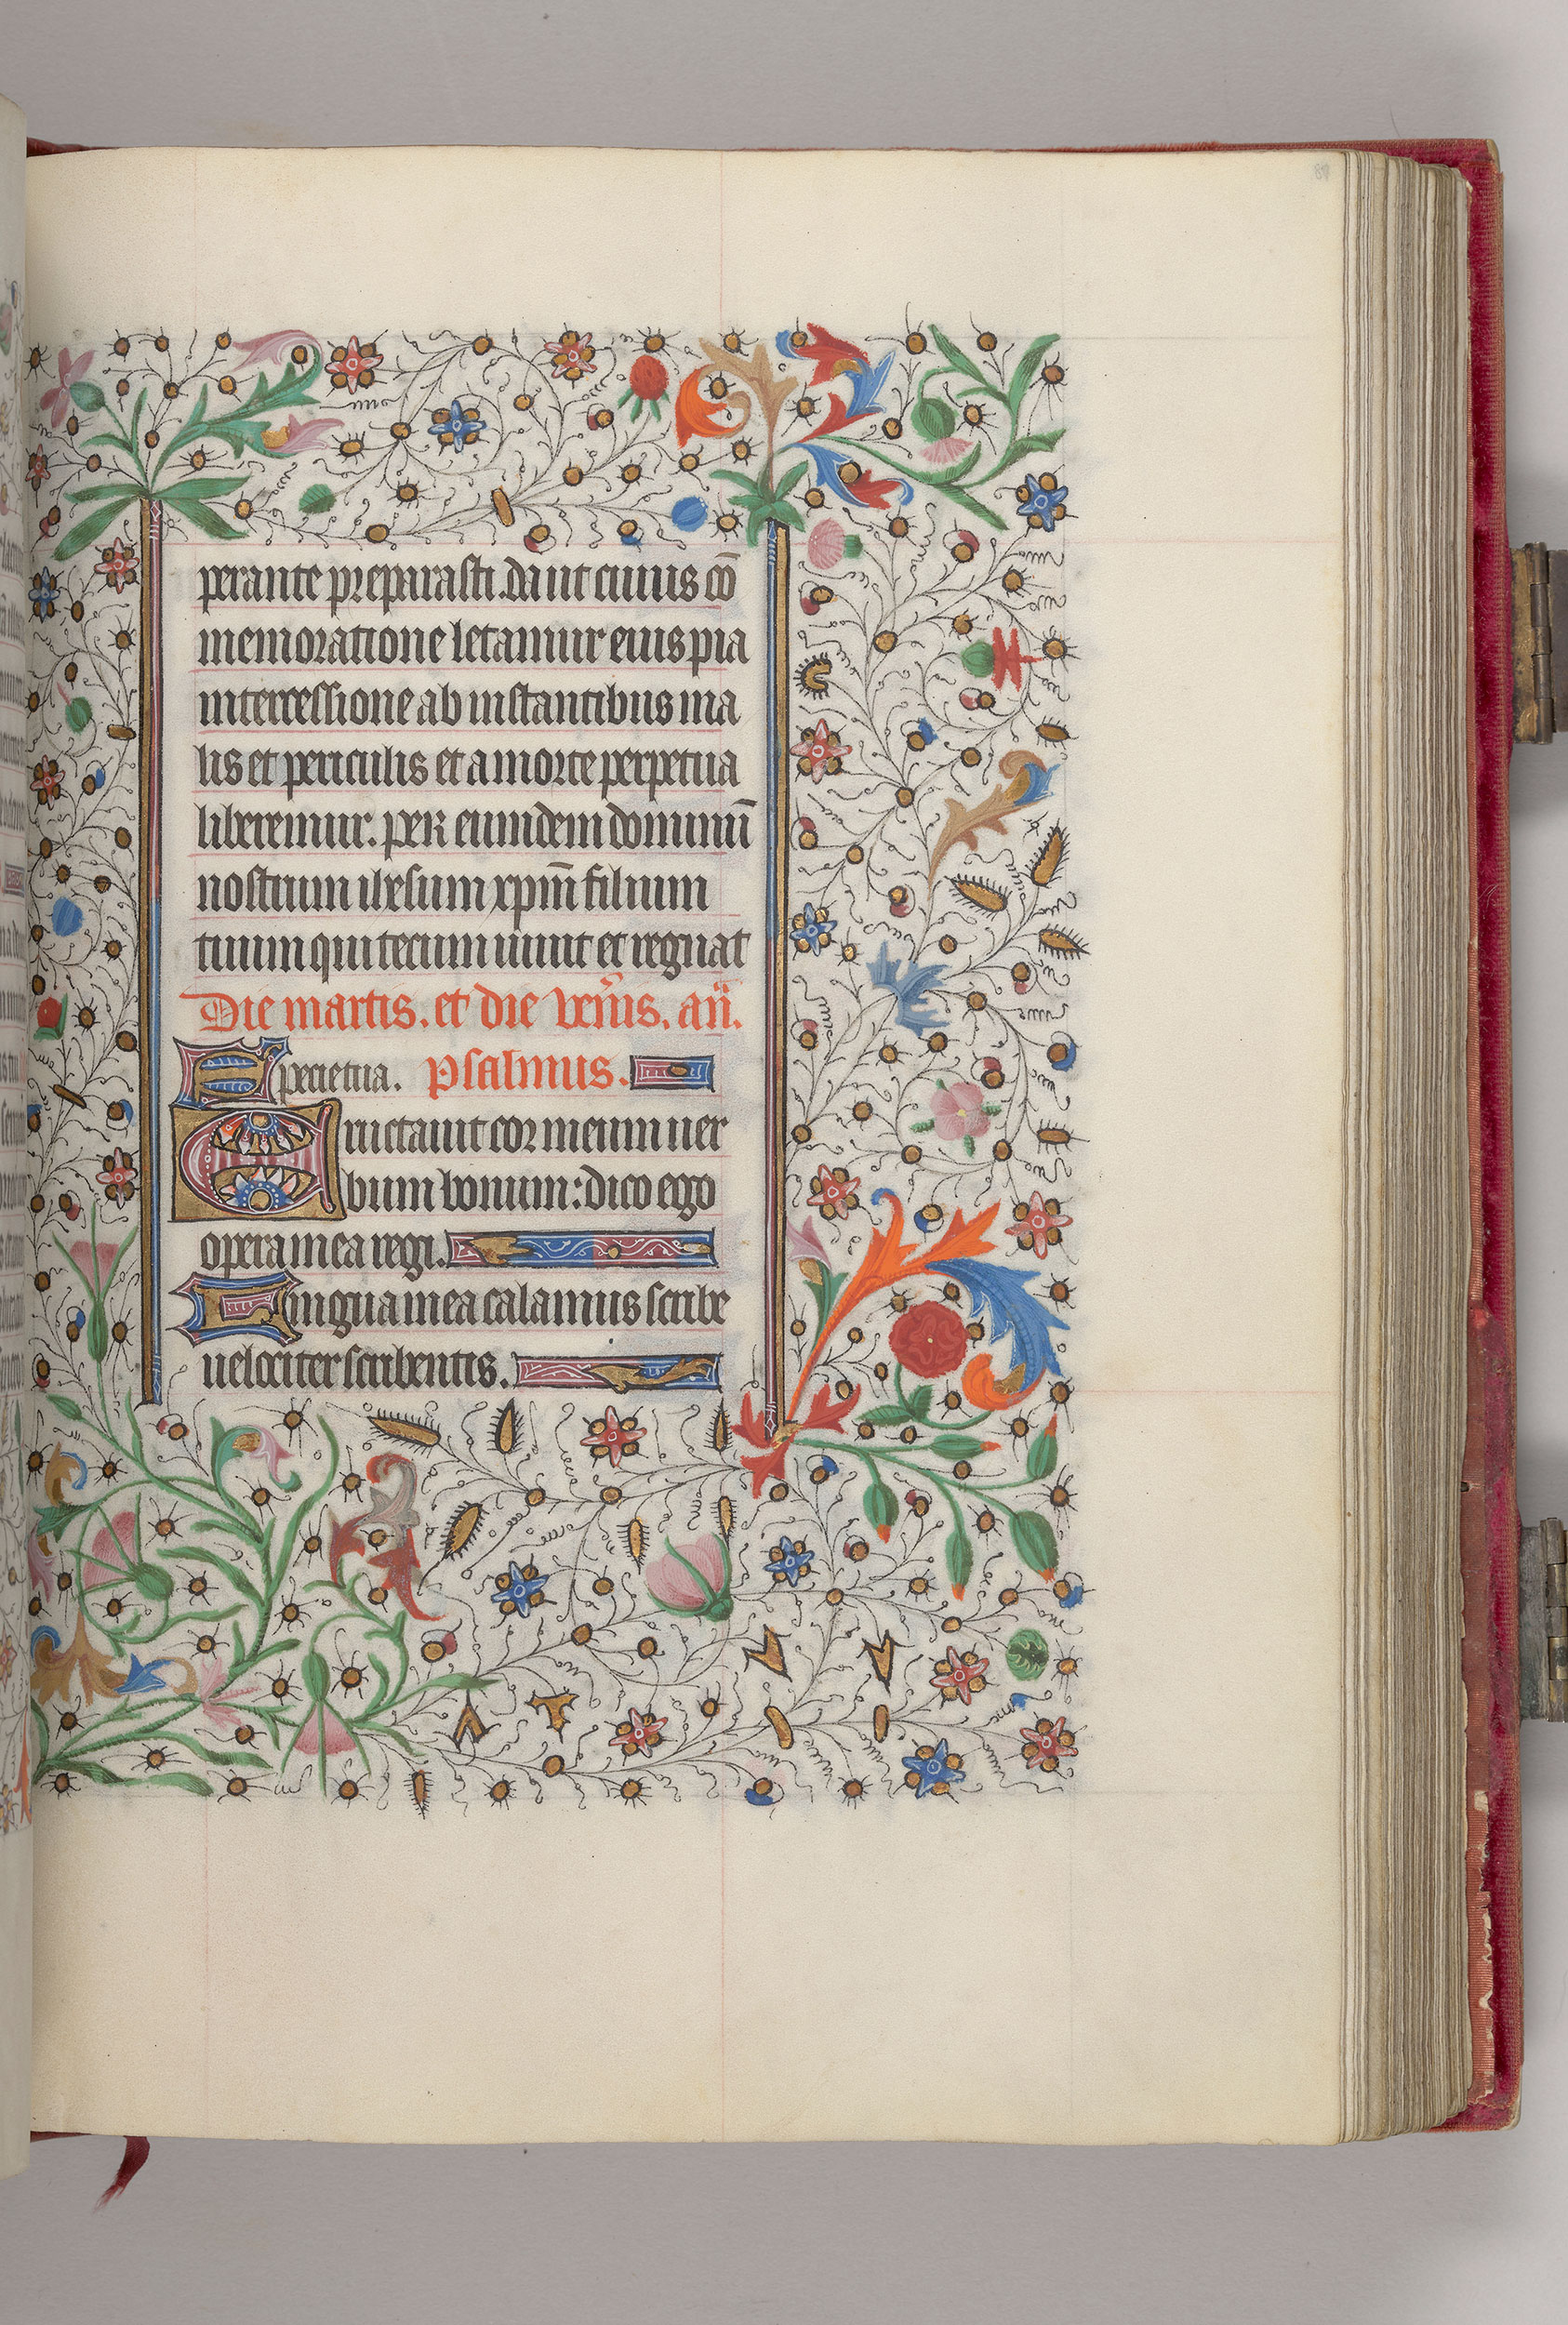 perante preparasti. da ut cuius cō
memoratione letamur eius pia
intercessione ab instantibus ma
lis et periculis et a morte perpetua
liberemur. per eumdem dominū
nostrum ihesum xp̄m filium
tuum qui tecum uiuit et regnat
Die martis. et die ven̄is. an̄.
Specietua. Psalmus.
Eructauit cor meum uer
bum bonum: dico ego
opera mea regi.
Lingua mea calamus scribe
uelociter scribentis.